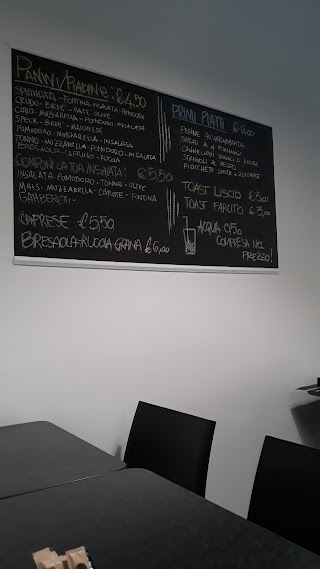 PANINI/PIADINE: €4,50
SPIANATA - FONTINA - INSALATA - POMODORI
CRUDO - BRIE - PATE' OLIVE
COTTO - MOZZARELLA - POMODORO - INSALATA
SPECK - BRIE' - MAIONESE
POMODORO - MOZZARELLA - INSALATA
TONNO - MOZZARELLA - POMODORO - INSALATA
BRESAOLA - CAPRINO - RUCOLA
COMPONI LA TUA INSALATA: €5,50
INSALATA POMODORO - TONNO - OLIVE
MAIS - MOZZARELLA - CAROTE - FONTINA
GAMBERETTI -
CAPRESE €5,50
BRESAOLA - RUCOLA - GRANA €6,00
PRIMI PIATTI €6,00
PENNE ALL'ARRABBIATA
CANNELLONI SPINACI E RICOTTA
GNOCCHETTI SPECK E ZUCCHINE
TOAST LISCIO €3,00
TOAST FARCITO €3,00
ACQUA 0,50
COMPRESA NEL
PREZZO!